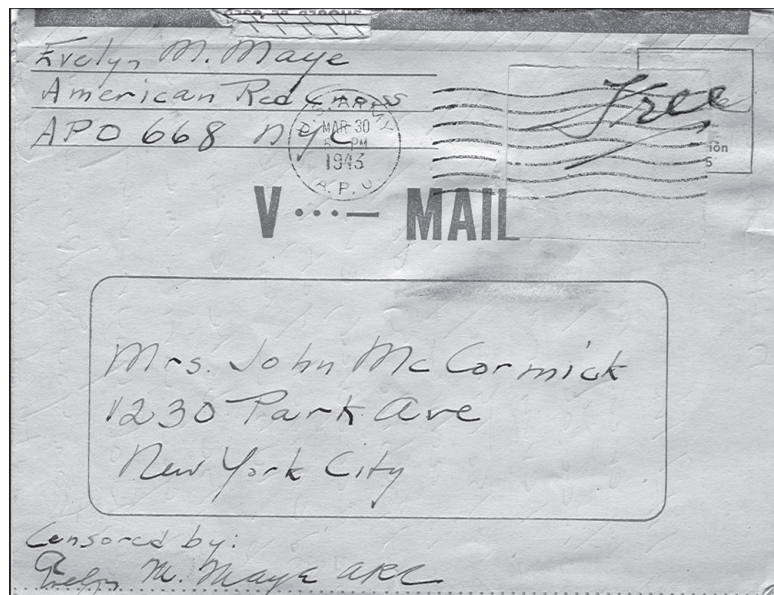 Evelyn M. Maye
American Red Cross
APO 668 NYC
Free
MAR 30
PM
1943
A.P.O.
V ...— MAIL
Mrs. John McCormick
1230 Park Ave
New York City
Censored by:
Evelyn M. Maye ARC